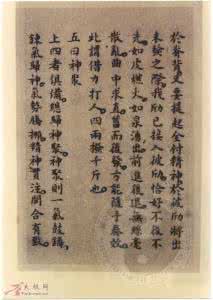 於脊背更要提起全付精神於彼勁將出
未發之際我勁已接入彼勁恰好不後不
先如皮燃火如泉湧出前進後退無絲毫
散亂曲中求直蓄而後發方能隨手奏效
此謂借力打人四兩撥千斤也
五曰神聚
上四者俱備總歸神聚神聚則一氣鼓鑄
鍊氣歸神氣勢騰挪精神貫注開合有致